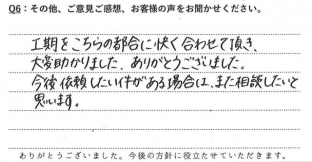 Q6：その他、ご意見ご感想、お客様の声をお聞かせください。
工期をこちらの都合に快く合わせて頂き、
大変助かりました。ありがとうございました。
今後依頼したい件がある場合は、また相談したいと
思います。
ありがとうございました。今後の方針に役立たせていただきます。